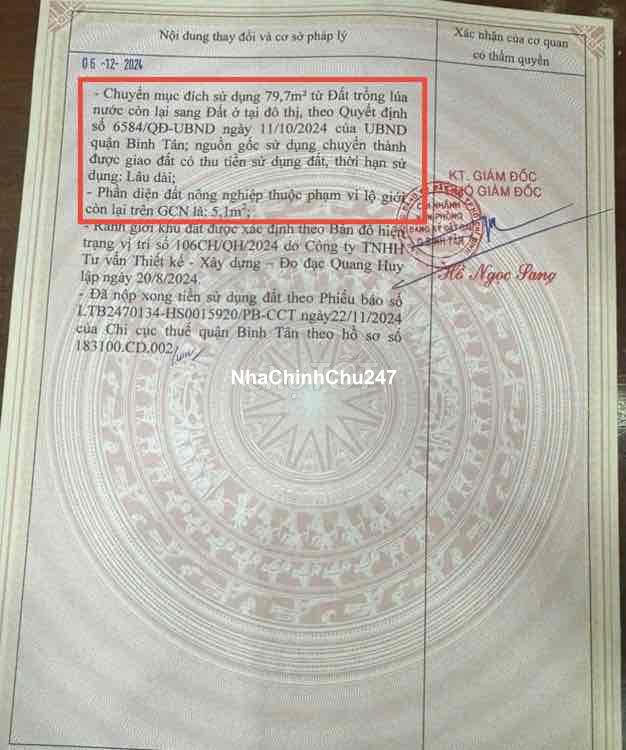 Nội dung thay đổi và cơ sở pháp lý
Xác nhận của cơ quan
có thẩm quyền
06-12-2024
- Chuyển mục đích sử dụng 79,7m² từ Đất trồng lúa
nước còn lại sang Đất ở tại đô thị, theo Quyết định
số 6584/QĐ-UBND ngày 11/10/2024 của UBND
quận Bình Tân; nguồn gốc sử dụng chuyển thành
được giao đất có thu tiền sử dụng đất, thời hạn sử
dụng: Lâu dài;
- Phần diện đất nông nghiệp thuộc phạm vi lộ giới
còn lại trên GCN là: 5,1m²;
- Ranh giới khu đất được xác định theo Bản đồ hiện
trạng vị trí số 106CH/QH/2024 do Công ty TNHH
Tư vấn Thiết kế - Xây dựng – Đo đạc Quang Huy
lập ngày 20/8/2024.
- Đã nộp xong tiền sử dụng đất theo Phiếu báo số
LTB2470134-HS0015920/PB-CCT ngày22/11/2024
của Chi cục thuế quận Bình Tân theo hồ sơ số
183100.CD.002
KT. GIÁM ĐỐC
PHÓ GIÁM ĐỐC
CHI NHÁNH
VĂN PHÒNG
ĐĂNG KÝ ĐẤT ĐAI
Q.BÌNH TÂN
Hồ Ngọc Sang
NhaChinhChu247